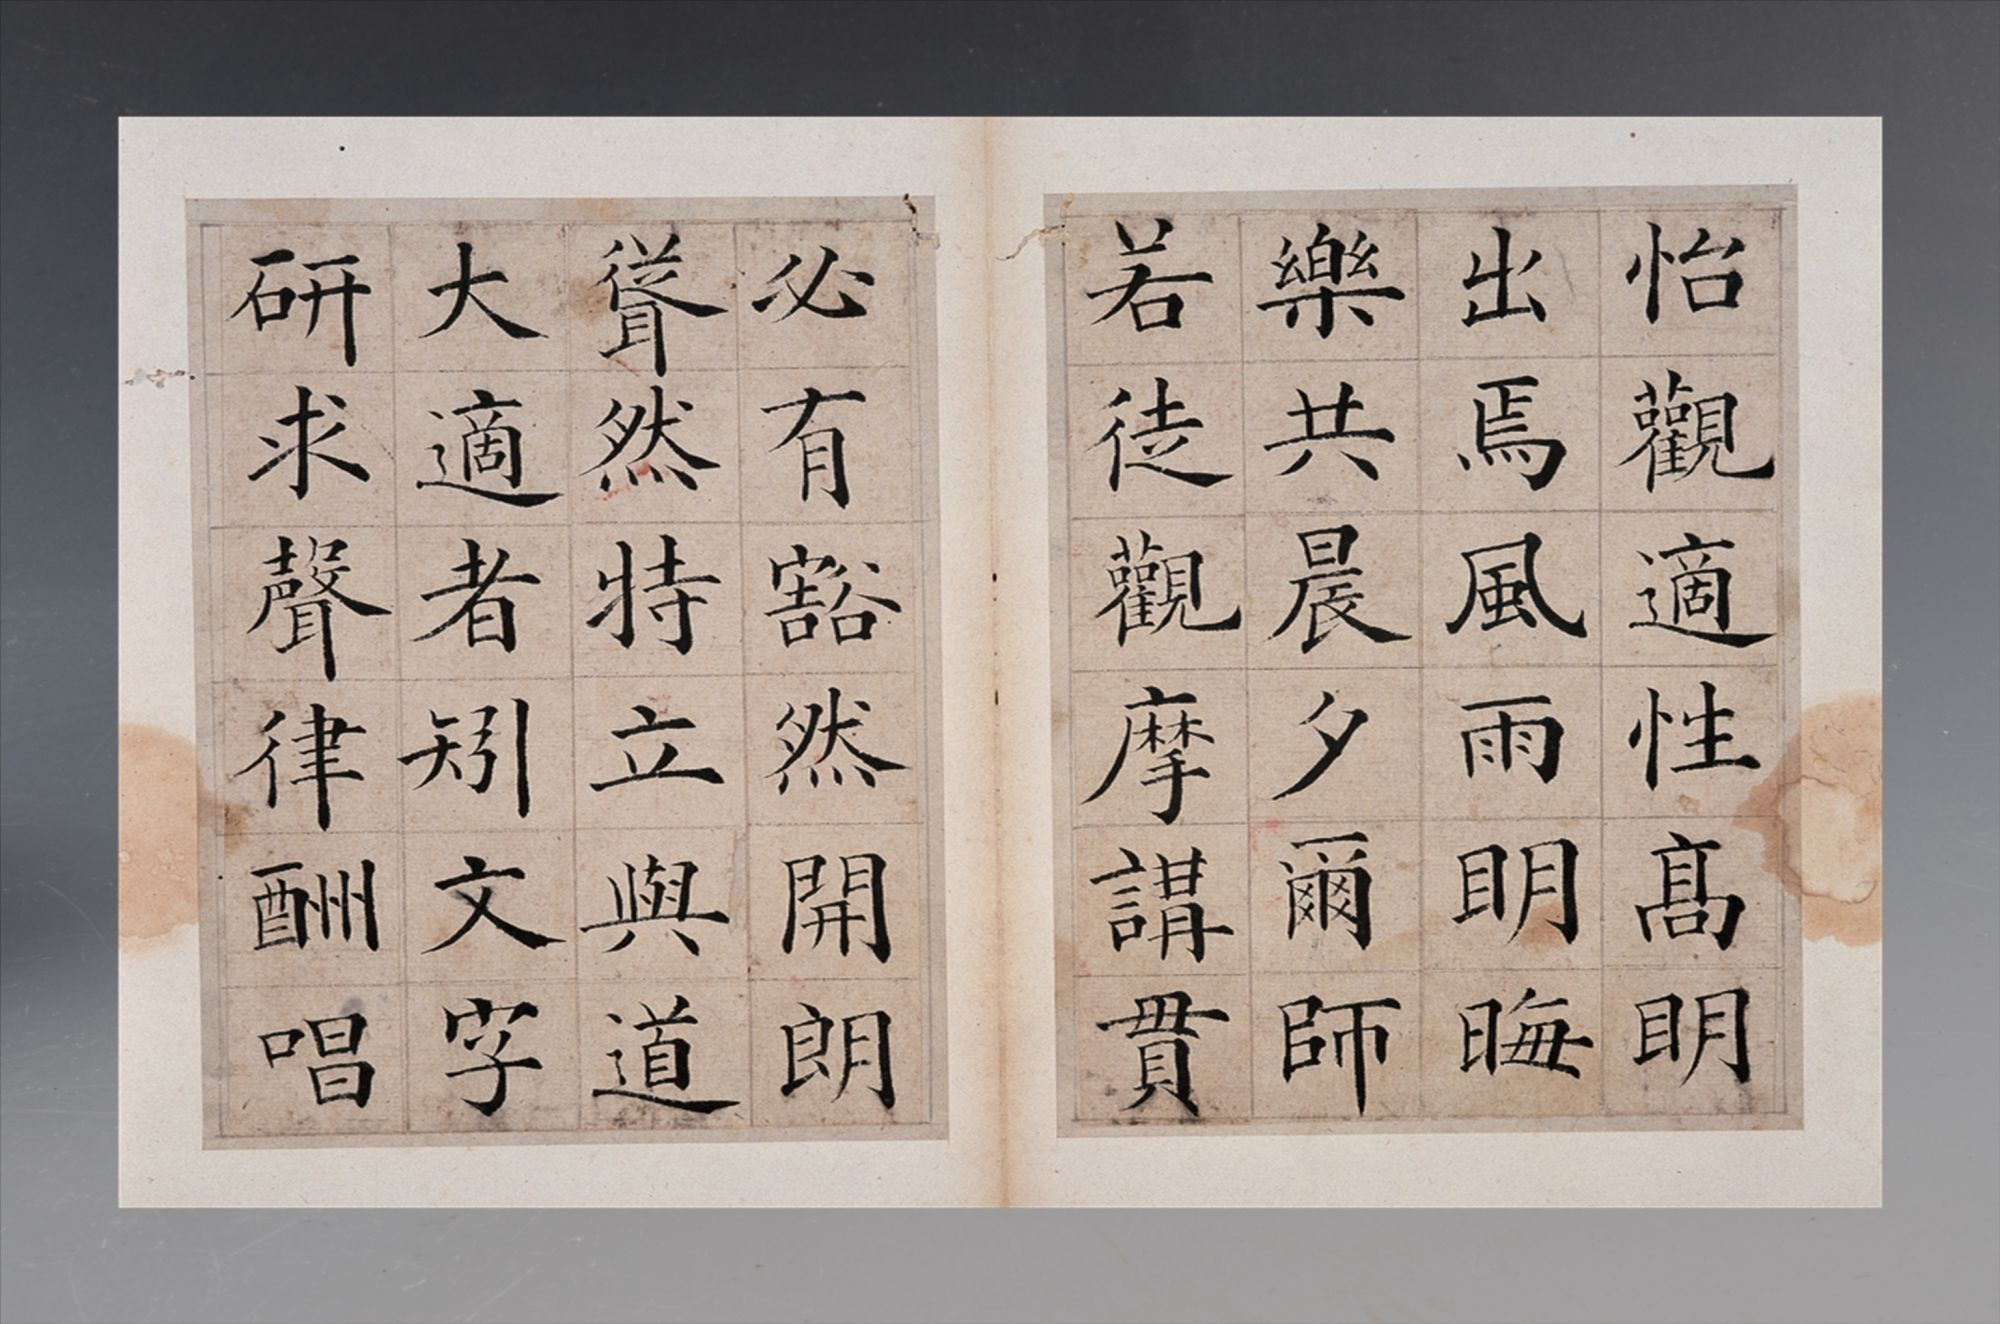 怡觀適性髙明
出焉風雨明晦
樂共晨夕爾師
若徒觀摩講貫
必有豁然開朗
聳然特立與道
大適者矧文字
研求聲律酬唱